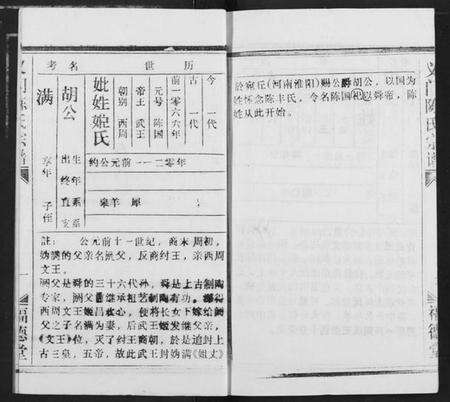 历世名考
今一代
古一代
前一〇六六年
元号 陈国
帝王 武王
朝别 西周
妣姓姬氏
胡公
满
出生年
终年
享年
约公元前一一二零年
直系
支系
子侄
皋羊 犀
註： 公元前十一世纪，商末周初，
妫满的父亲名阏父，反商纣王，亲西周
文王。
阏父是舜的三十六代孙，舜是上古制陶
专家，阏父继承祖艺制陶有功。
西周文王姬昌欢心，便将长女下嫁给阏
父之子名满为妻，后武王姬发继父亲，
《文王》位，灭了纣王商朝，於是追封上
古三皇，五帝，故此武王封妫满《姐丈》
义门陈氏宗谱
一
福德堂
於宛丘(河南淮阳)赐公爵胡公，以国为
姓怀念陈丰氏，令名陈国祀舜帝，陈
姓从此开始。
义门陈氏宗谱
福德堂